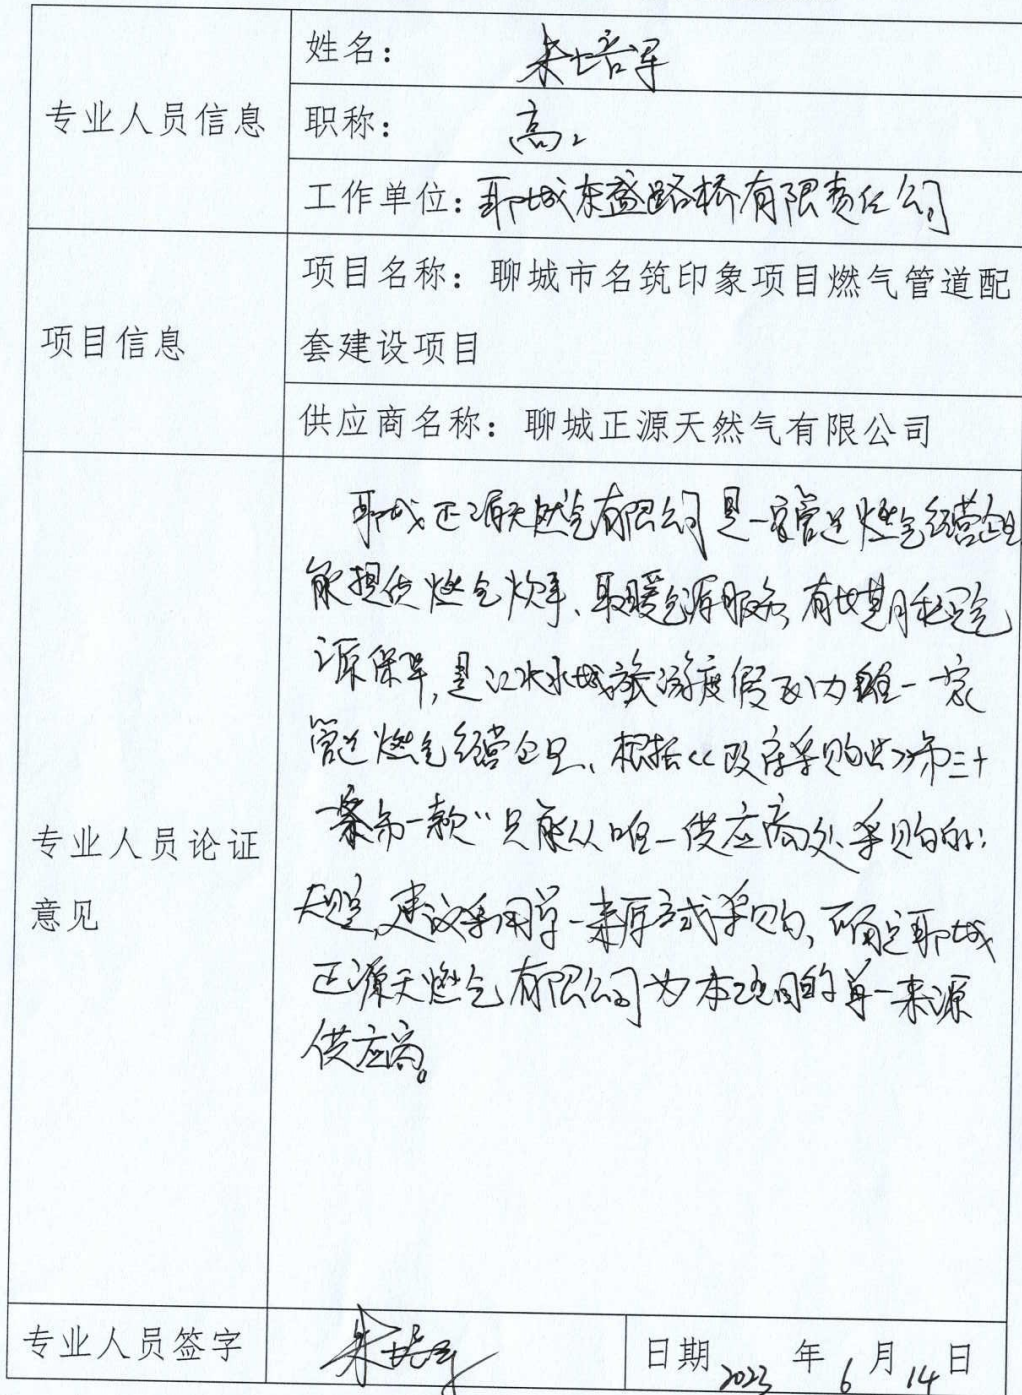 专业人员信息
姓名： 朱培军
职称： 高工
工作单位：聊城东盛路桥有限责任公司
项目信息
项目名称：聊城市名筑印象项目燃气管道配
套建设项目
供应商名称：聊城正源天然气有限公司
专业人员论证
意见
聊城正源天燃气有限公司是一家管道燃气经营企业
能提供燃气炊事、取暖气源服务，有长期稳定气
源保障，是江北水城旅游度假区内唯一一家
管道燃气经营企业、根据《政府采购法》第三十
一条第一款“只能从唯一供应商处采购的”
规定，建议采用单一来源方式采购，确定聊城
正源天燃气有限公司为本项目的单一来源
供应商。
专业人员签字
朱培军
日期 2023 年 6 月 14 日